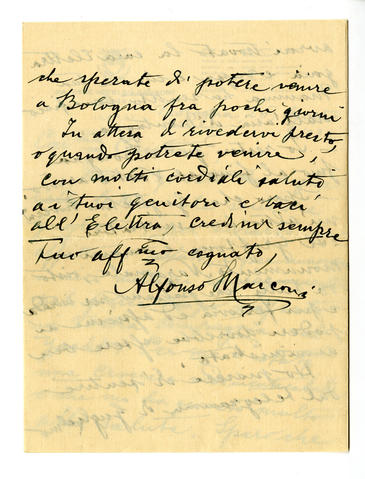 che sperate di potere venire
a Bologna fra pochi giorni
In attesa di rivedervi presto,
o quando potrete venire,
con molti cordiali saluti
ai tuoi genitori e baci
all' Elettra, credimi sempre
Tuo affmo cognato,
Alfonso Marconi